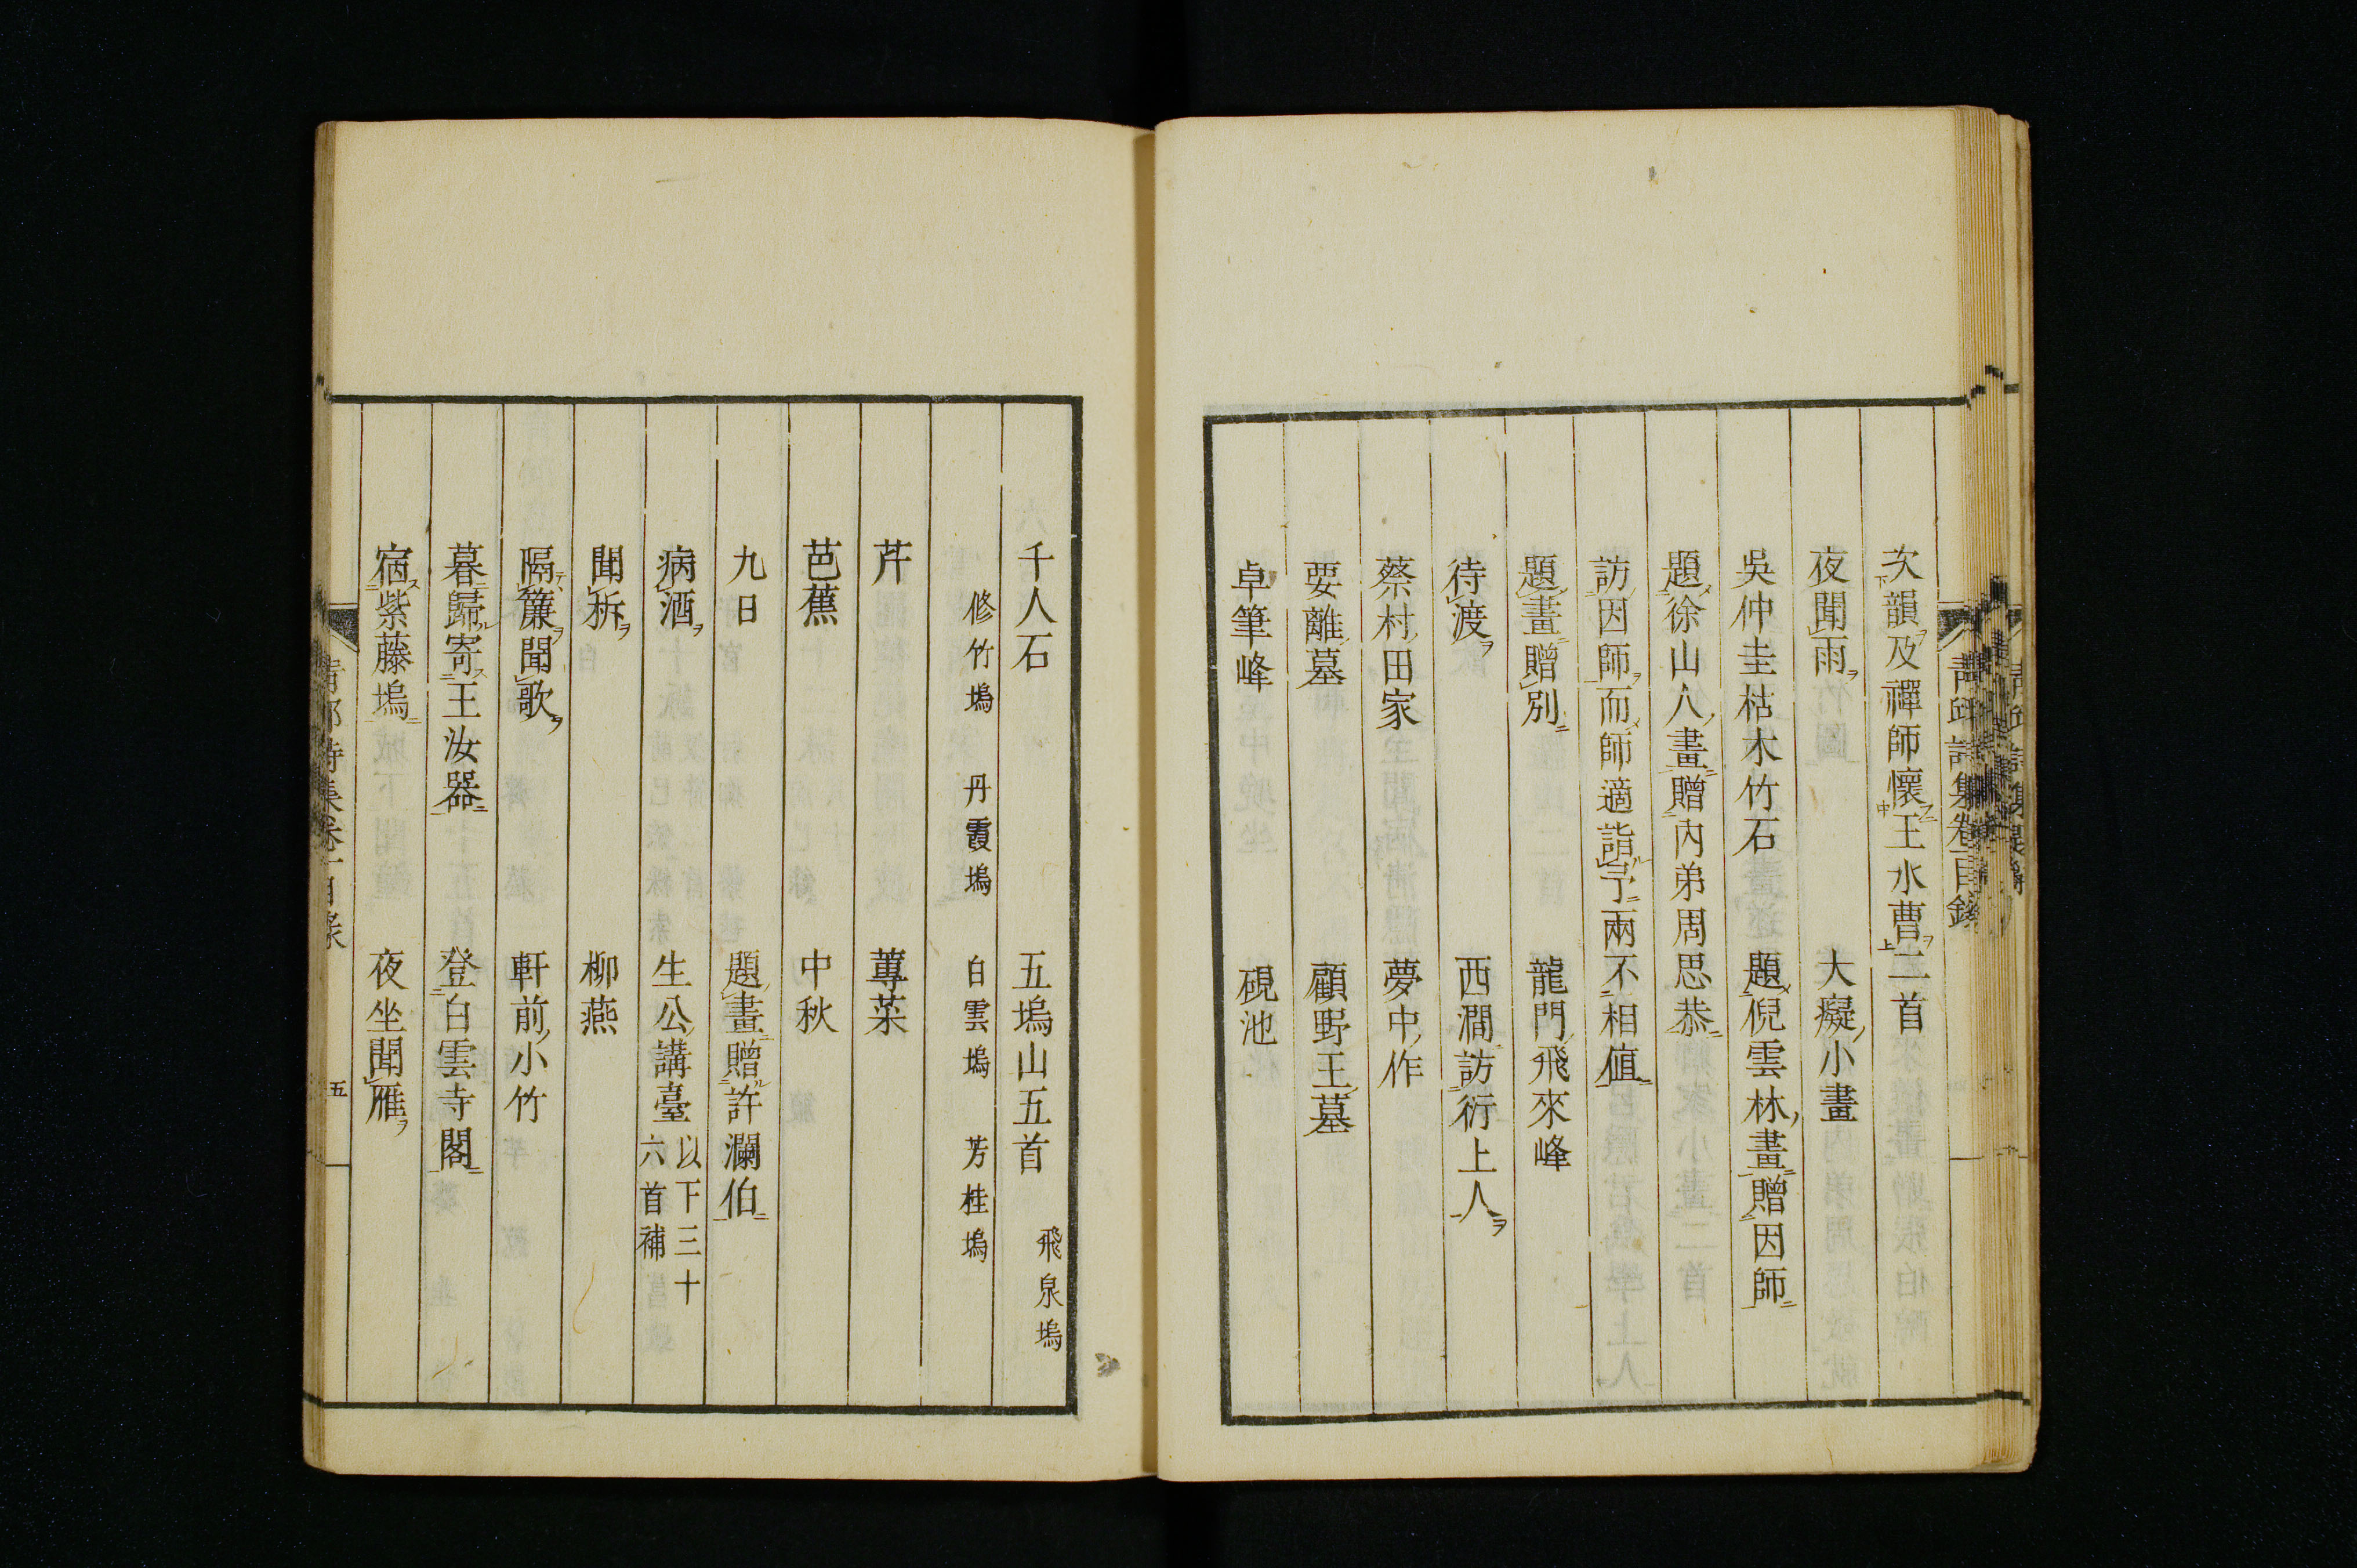 次韻及禪師懷王水曹二首
夜聞雨　大癡小畫
吳仲圭枯木竹石　題倪雲林畫贈因師
題徐山人畫贈內弟周思恭
訪因師而師適詣予兩不相值
題畫贈別　龍門飛來峰
待渡　西澗訪衍上人
蔡村田家　夢中作
要離墓　顧野王墓
卓筆峰　硯池
千人石　五塢山五首　飛泉塢
修竹塢　丹霞塢　白雲塢　芳桂塢
芹　蓴菜
芭蕉　中秋
九日　題畫贈許瀾伯
病酒　生公講臺 以下三十六首補
聞柝　柳燕
隔簾聞歌　軒前小竹
暮歸寄王汝器　登白雲寺閣
宿紫藤塢　夜坐聞雁
五